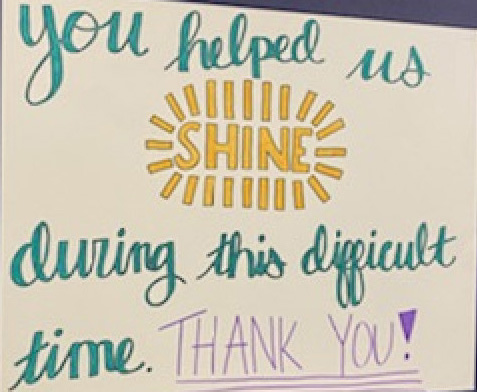 you helped us
SHINE
during this difficult
time. THANK YOU!